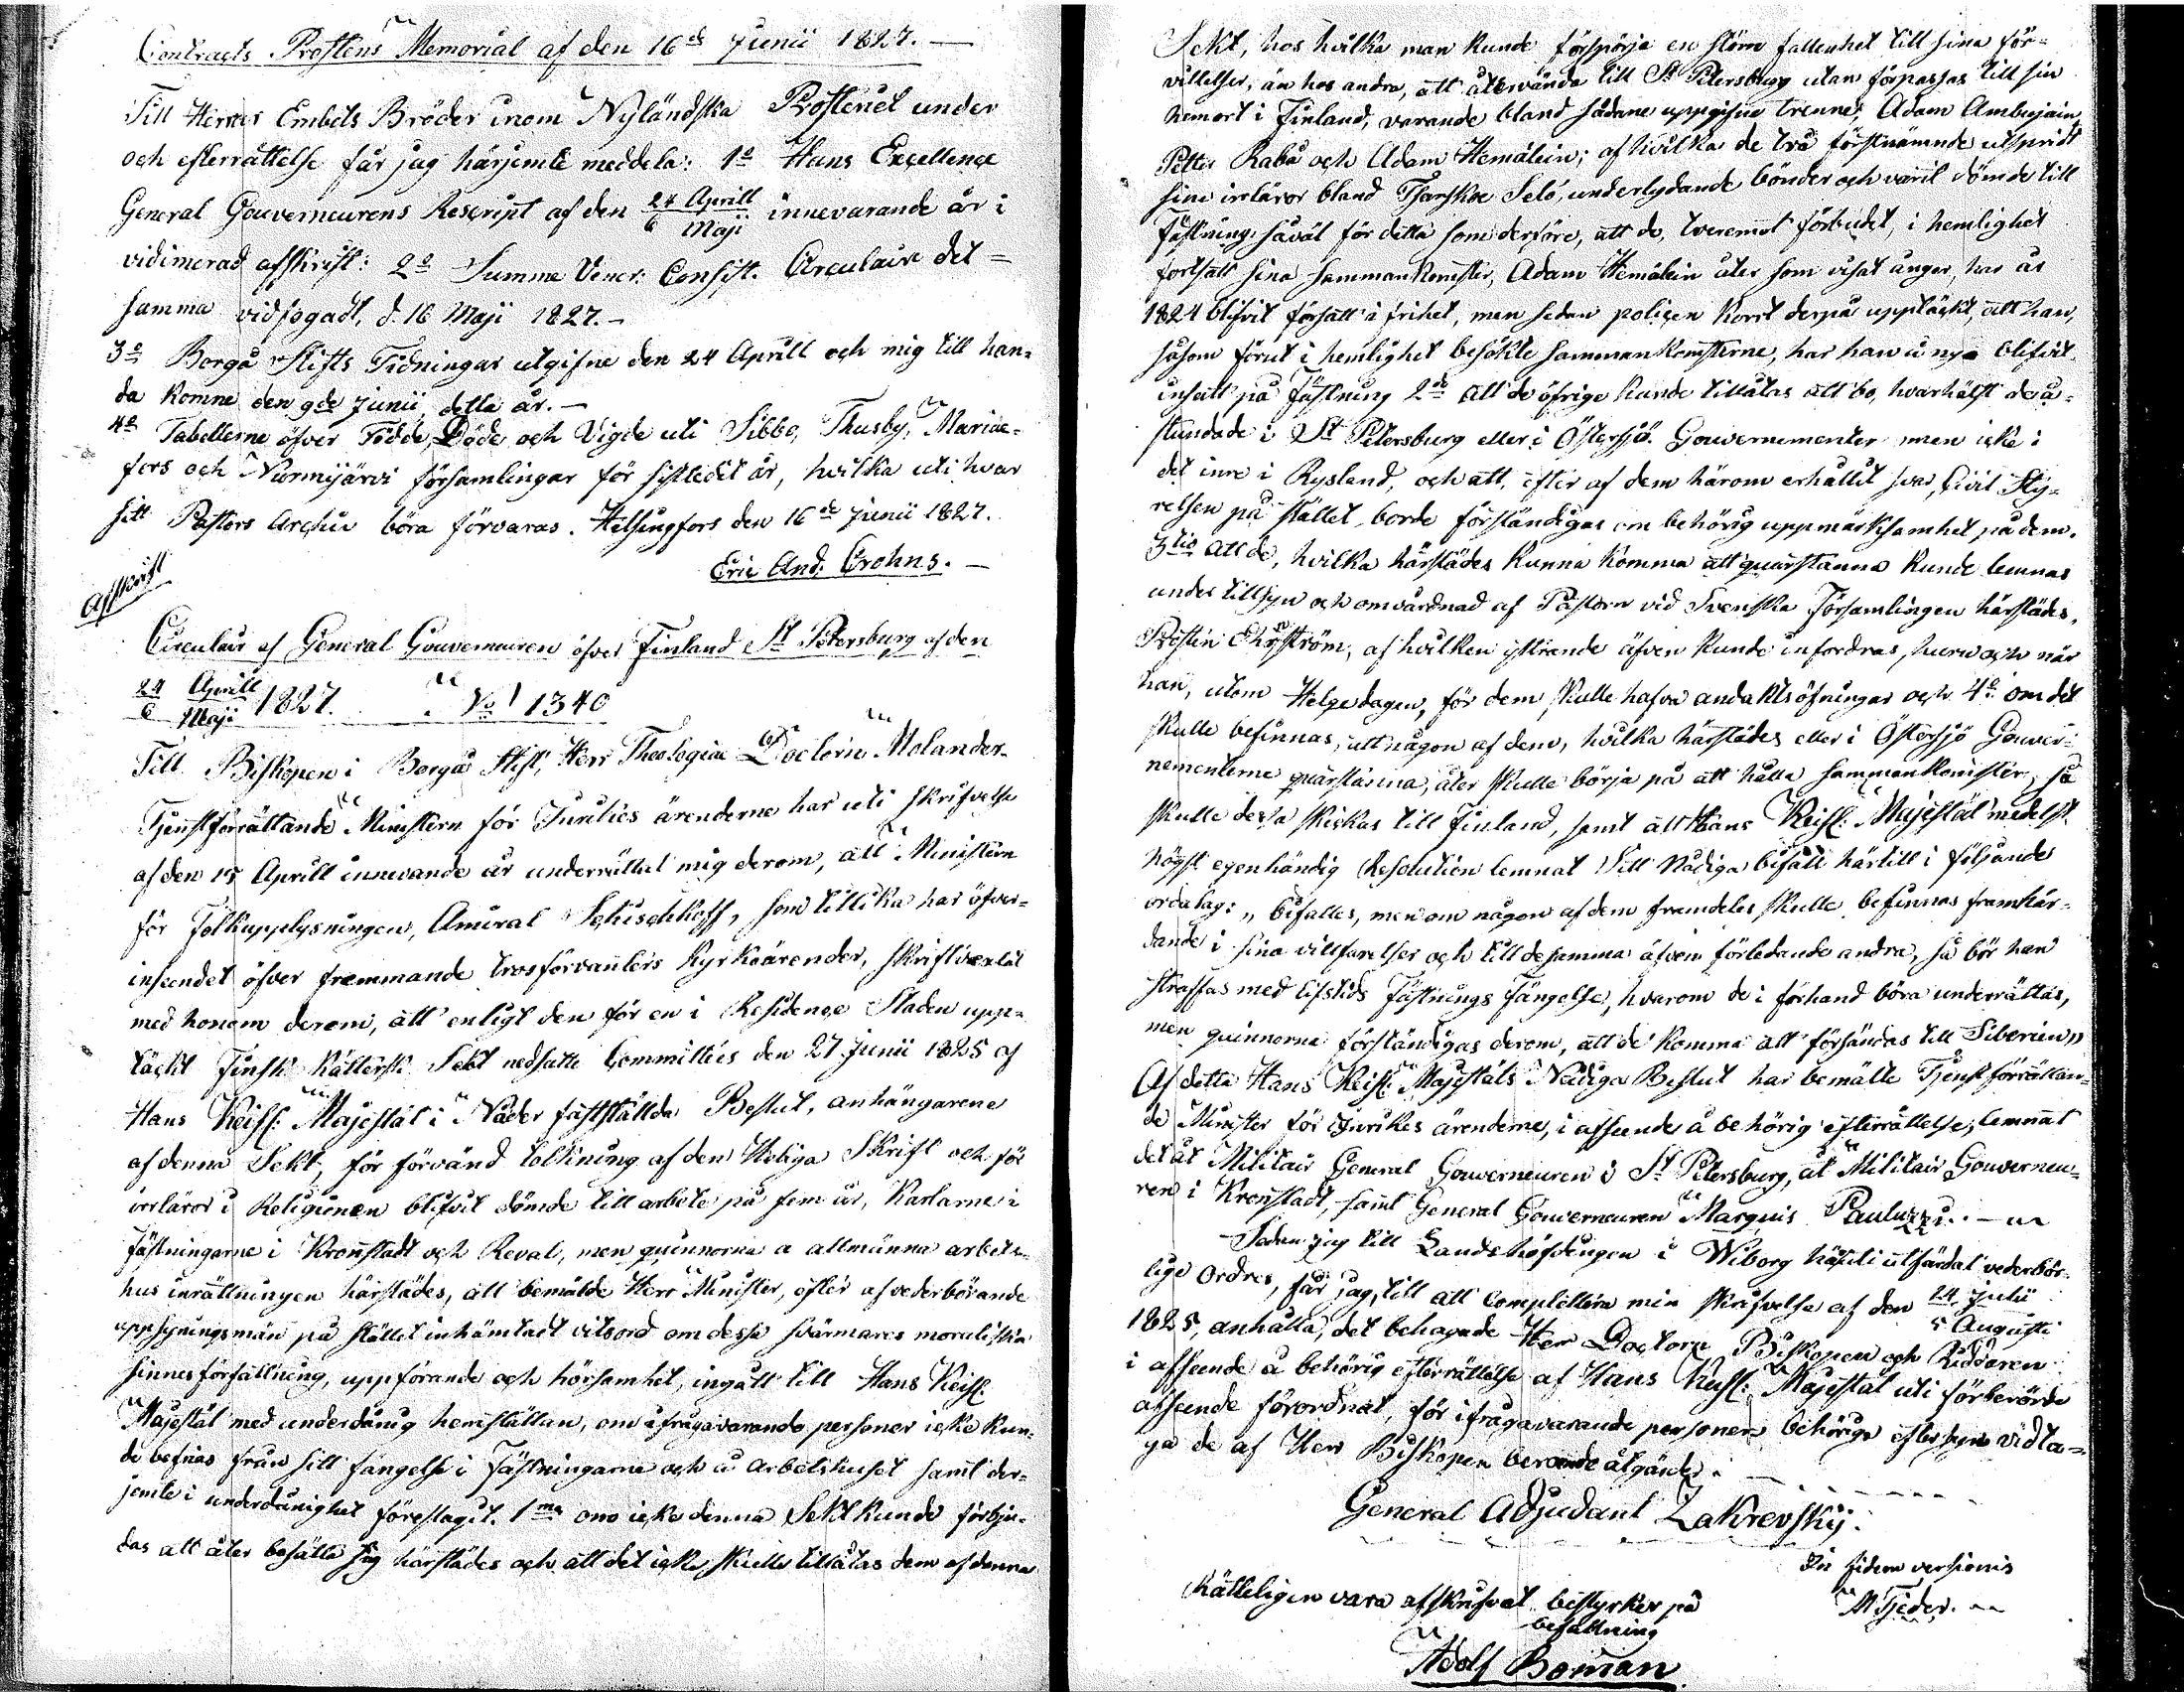 Contracts Prostens Memorial af den 16de Junii 1827. —
Till Herrar Embets Bröder inom Nyländska Prosteriet under
och efterrättelse får jag härjemte meddela: 1o Hans Excellence
General Gouverneurens Rescript af den 24 Aprill / 6 Maji innevarande år i
vidimerad afskrift: 2o Summe Vener: Consist. Circulaire det=
samma vidfogadt, d. 16 Maji 1827. —
3o Borgå Stifts Tidningar utgifne den 24 Aprill och mig till han=
da komne den 9de Junii detta år. —
4o Tabellerne öfver Födde, Döde och Vigde uti Sibbo, Thusby, Mariae=
fors och Nurmijärvi församlingar för sistledit år, hvilka uti hvar
sitt Pastors Archiv böra förvaras. Helsingfors den 16de Junii 1827.
Eric And. Crohns. —
Afskrift
Circulair af General Gouverneuren öfver Finland St Petersburg af den
24 Aprill / 6 Maji 1827. No 1340
Till Biskopen i Borgå Stift, Herr Theologiae Doctorn Molander.
Tjenstförrättande Ministern för Inrikes ärenderne har uti skrifvelse
af den 15 Aprill innevande år underrättat mig derom, att Ministern
för Folkupplysningen, Amiral Schischkoff, som tillika har öfver=
inseendet öfver frammande trosförvanters Kyrkoärender, skriftvexlat
med honom derom, att enligt den för en i Residence Staden upp=
täckt Finsk Kättersk Sekt nedsatte Committés den 27 Junii 1825 af
Hans Keisl: Majestät i Nåder faststälda Beslut, anhängarene
af denna Sekt, för förvänd tolkning af den Heliga Skrift och för
irrläror i Religionen blifvit dömde till arbete på fem år, Karlarne i
Fästningarne i Kronstadt och Reval, men quinnorna a allmänna arbets=
hus inrättningen härstädes, att bemälde Herr Minister, efter af vederbörande
uppsyningsmän på stället inhämtadt vitsord om desse svärmares moraliska
sinnesförfattning, uppförande och hörsamhet, ingått till Hans Keisl:
Majestät med underdånig hemställan, om ifrågavarande personer icke kun=
de befrias från sitt fängelse i Fästningarne och å arbetshuset samt der=
jemte i underdånighet föreslagit. 1mo om icke denna Sekt kunde förbju=
das att åter bosätta sig härstädes och att det icke skulle tillåtas dem af denna
Sekt, hos hvilka man kunde förspörja en större fallenhet till sina för=
villelser, än hos andra, att återvända till St Petersburg utan förpassas till sin
hemort i Finland, varande bland sådane uppgifne trenne, Adam Ambrjain,
Petter Raba och Adam Hemälein; af hvilka de två förstnämnde utspridt
sina irrläror bland Tsarskoe Selo, underlydande bönder och varit dömde till
Fästning, såväl för detta som derföre, att de, tveremot förbudet, i hemlighet
fortsatt sina sammankomster, Adam Hemälein åter som visat ånger, har år
1824 blifvit försatt i frihet, men sedan policen kort derpå upptäckt, att han,
såsom förut i hemlighet besökte sammankomsterne, har han å nyo blifvit
insatt på Fästning 2do att de öfrige kunde tillåtas att bo, hvarhälst de å=
stundade i St Petersburg eller i Östersjö Gouvernementer men icke i
det inre i Rysland, och att, efter af dem härom erhållit svar, Civil Sty=
relsen på stället borde förständigas om behörig uppmärksamhet på dem.
3tio att de, hvilka härstädes kunna komma att quarstanna kunde lemnas
under tillsyn och omvårdnad af Pastorn vid Svenska Församlingen härstädes,
Prosten Ehrström, af hvilken yttrande äfven kunde infordras, huru och när
han, utom Helgedagen, för dem skulle hafva andaktsöfningar och 4o om det
skulle befinnas, att någon af dem, hvilka härstädes eller i Östersjö Gouver=
nementerne quarstanna, åter skulle börja på att hålla sammankomster, så
skulle dessa skickas till Finland, samt att Hans Keisl: Majestät medelst
högst egenhändig Resolution lemnat Sitt Nådiga bifall härtill i följande
ordalag: „bifalles, men om någon af dem framdeles skulle befinnas framhär=
dande i sina villfarelser och till desamma äfven förledande andra, så bör han
straffas med lifstids Fästnings Fängelse, hvarom de i förhand böra underrättas,
men quinnorna förständigas derom, att de komma att försändas till Siberien„
Af detta Hans Keisl: Majestäts Nådiga Beslut har bemälte Tjenstförrättan=
de Minister för Inrikes ärenderne, i afseende å behörig efterrättelse, lemnat
det åt Militair General Gouverneuren i St Petersburg, åt Militair Gouverneu=
ren i Kronstadt, samt General Gouverneuren Marquis Paulucci. —
Sedan jag till Landshöfdingen i Wiborg härutі utfärdat vederbör=
lige Ordres, får jag, till att complettera min skrifvelse af den 24 Julii / 5 Augusti
1825, anhålla, det behagade Herr Doctorn Biskopen och Riddaren
i afseende å behörig efterrättelse af Hans Keisl: Majestät uti förberörde
afseende förordnat, för ifrågavarande personers behöriga eftersyn vidta=
ga de af Herr Biskopen beroende åtgärder.
General Adjudant Zakrevskij.
In fidem versionis
M Tjeder.
Rätteligen vara afskrifvat bestyrker på
befallning
Adolf Boman